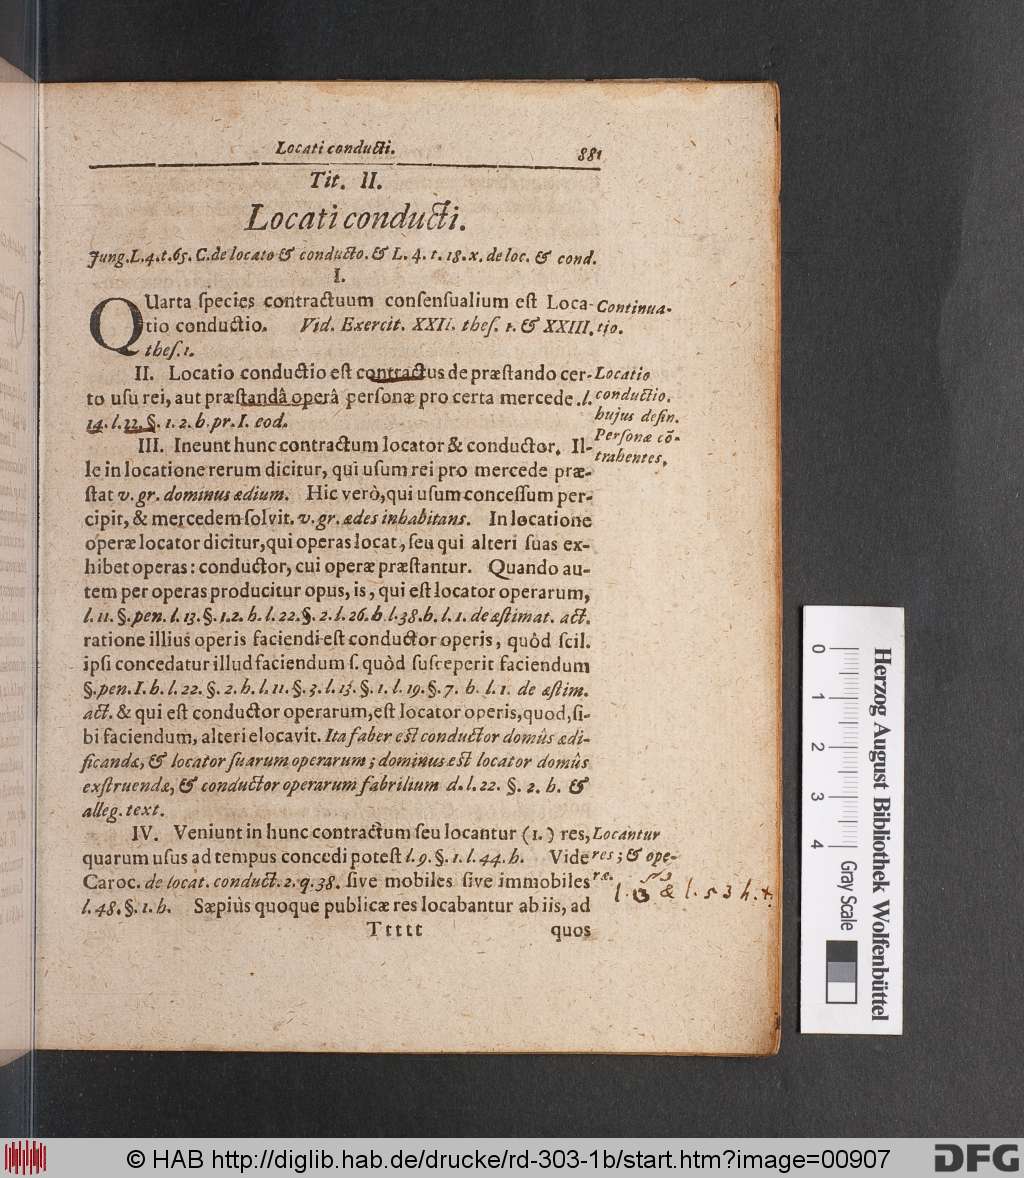 Locati conducti.
881
Tit. II.
Locati conducti.
Jung. L. 4. t. 65. C. de locato & conducto. & L. 4. t. 18. x. de loc. & cond.
I.
QUarta ſpecies contractuum conſenſualium eſt Loca-
tio conductio. Vid. Exercit. XXII. theſ. 1. & XXIII.
theſ. 1.
Continua-
tio.
II. Locatio conductio eſt contractus de præſtando cer-
to uſu rei, aut præſtandâ operâ perſonæ pro certa mercede. l.
14. l. 22. §. 1. 2. h. pr. I. eod.
Locatio
conductio.
hujus defin.
III. Ineunt hunc contractum locator & conductor. Il-
le in locatione rerum dicitur, qui uſum rei pro mercede præ-
ſtat v. gr. dominus ædium. Hic verò, qui uſum conceſſum per-
cipit, & mercedem ſolvit. v. gr. ædes inhabitans. In locatione
operæ locator dicitur, qui operas locat, ſeu qui alteri ſuas ex-
hibet operas: conductor, cui operæ præſtantur. Quando au-
tem per operas producitur opus, is, qui eſt locator operarum,
l. 11. §. pen. l. 13. §. 1. 2. h. l. 22. §. 2. l. 26. h. l. 38. h. l. 1. de æſtimat. act.
ratione illius operis faciendi eſt conductor operis, quòd ſcil.
ipſi concedatur illud faciendum ſ. quòd ſuſceperit faciendum
§. pen. I. h. l. 22. §. 2. h. l. 11. §. 3. l. 13. §. 1. l. 19. §. 7. h. l. 1. de æſtim.
act. & qui eſt conductor operarum, eſt locator operis, quod, ſi-
bi faciendum, alteri elocavit. Ita faber eſt conductor domûs ædi-
ficandæ, & locator ſuarum operarum; dominus eſt locator domûs
exſtruendæ, & conductor operarum fabrilium d. l. 22. §. 2. h. &
alleg. text.
Perſonæ cõ-
trahentes.
IV. Veniunt in hunc contractum ſeu locantur (1.) res,
quarum uſus ad tempus concedi poteſt l. 9. §. 1. l. 44. h. Vide
Caroc. de locat. conduct. 2. q. 38. ſive mobiles ſive immobiles
l. 48. §. 1. h. Sæpiùs quoque publicæ res locabantur ab iis, ad
Locantur
res; & ope-
ræ.
& l. 53 h. t.
Ttttt
quos
0
1
2
3
4
Gray Scale
Herzog August Bibliothek Wolfenbüttel
© HAB http://diglib.hab.de/drucke/rd-303-1b/start.htm?image=00907
DFG